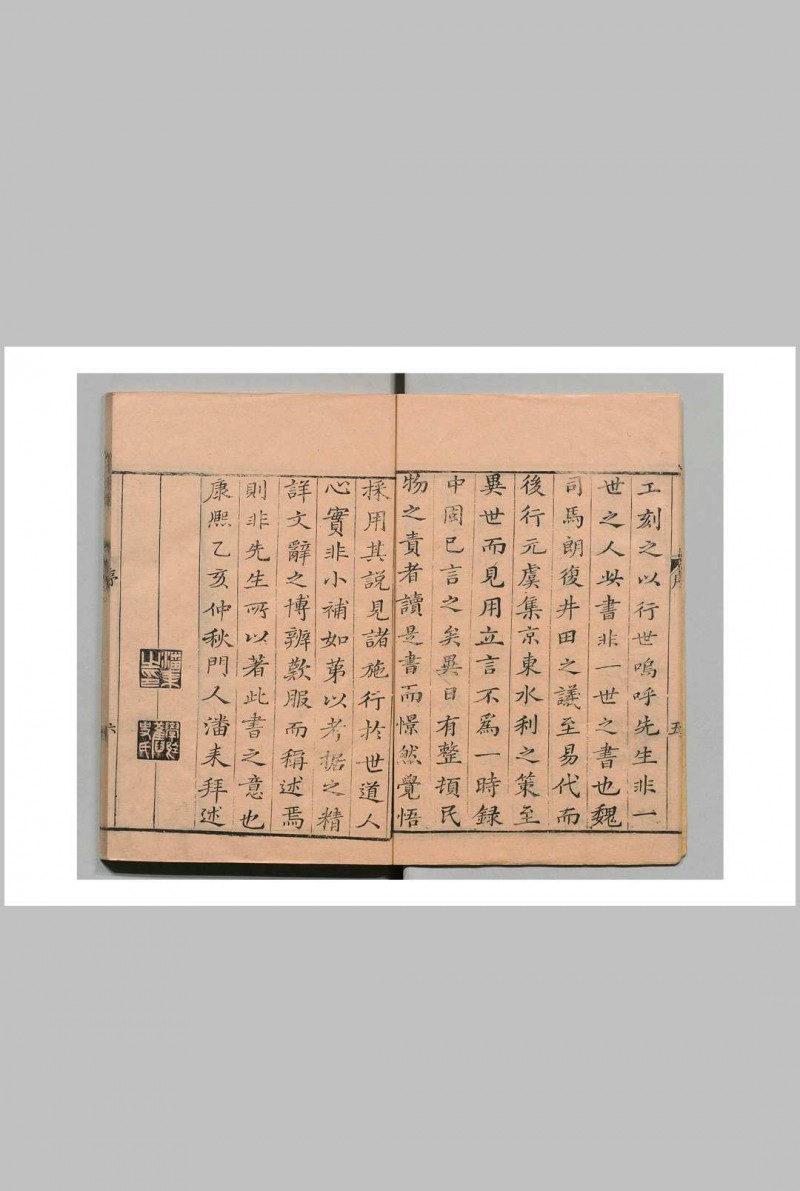 工刻之以行世嗚呼先生非一
世之人此書非一世之書也魏
司馬朗復井田之議至易代而
後行元虞集京東水利之策至
異世而見用立言不爲一時録
中固已言之矣異日有整頓民
物之責者讀是書而憬然覺悟
採用其説見諸施行於世道人
心實非小補如第以考據之精
詳文辭之博辨歎服而稱述焉
則非先生所以著此書之意也
康熙乙亥仲秋門人潘耒拜述
潘耒之印
序
五
序
六